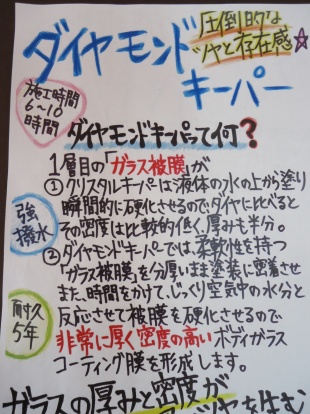 圧倒的な
ツヤと存在感☆
ダイヤモンド
キーパー
施工時間
6~10
時間
ダイヤモンドキーパって何?
1層目の「ガラス被膜」が
①クリスタルキーパーは液体の水の上から塗り
瞬間的に硬化させるので、ダイヤに比べると
その密度は比較的低く、厚みも半分。
強
撥水
②ダイヤモンドキーパーでは、柔軟性を持つ
「ガラス被膜」を分厚いまま塗装に密着させ
また、時間をかけて、じっくり空気中の水分と
反応させて被膜を硬化させるので
耐久
5年
非常に厚く密度の高いボディガラス
コーティング膜を形成します。
ガラスの厚みと密度が